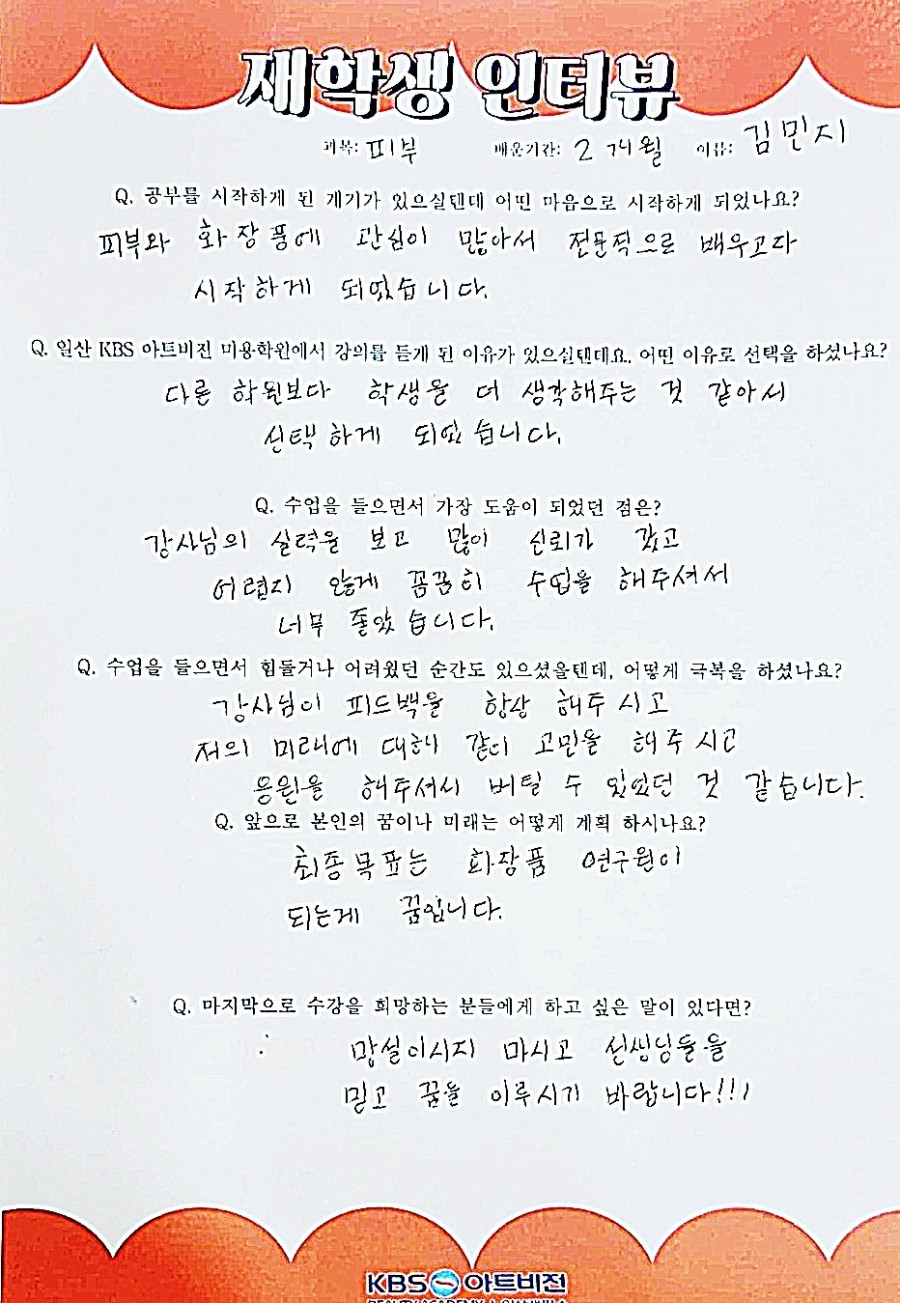 재학생 인터뷰
과목: 피부 배운기간: 2 개월 이름: 김민지
Q. 공부를 시작하게 된 계기가 있으실텐데 어떤 마음으로 시작하게 되었나요?
피부와 화장품에 관심이 많아서 전문적으로 배우고자
시작하게 되었습니다.
Q. 일산 KBS 아트비전 미용학원에서 강의를 듣게 된 이유가 있으실텐데요. 어떤 이유로 선택을 하셨나요?
다른 학원보다 학생을 더 생각해주는 것 같아서
선택하게 되었습니다.
Q. 수업을 들으면서 가장 도움이 되었던 점은?
강사님의 실력을 보고 많이 신뢰가 갔고
어렵지 않게 꼼꼼히 수업을 해주셔서
너무 좋았습니다.
Q. 수업을 들으면서 힘들거나 어려웠던 순간도 있으셨을텐데, 어떻게 극복을 하셨나요?
강사님이 피드백을 항상 해주시고
저의 미래에 대해 같이 고민을 해주시고
응원을 해주셔서 버틸 수 있었던 것 같습니다.
Q. 앞으로 본인의 꿈이나 미래는 어떻게 계획 하시나요?
최종목표는 화장품 연구원이
되는게 꿈입니다.
Q. 마지막으로 수강을 희망하는 분들에게 하고 싶은 말이 있다면?
망설이시지 마시고 선생님들을
믿고 꿈을 이루시기 바랍니다!!!
KBS 아트비전